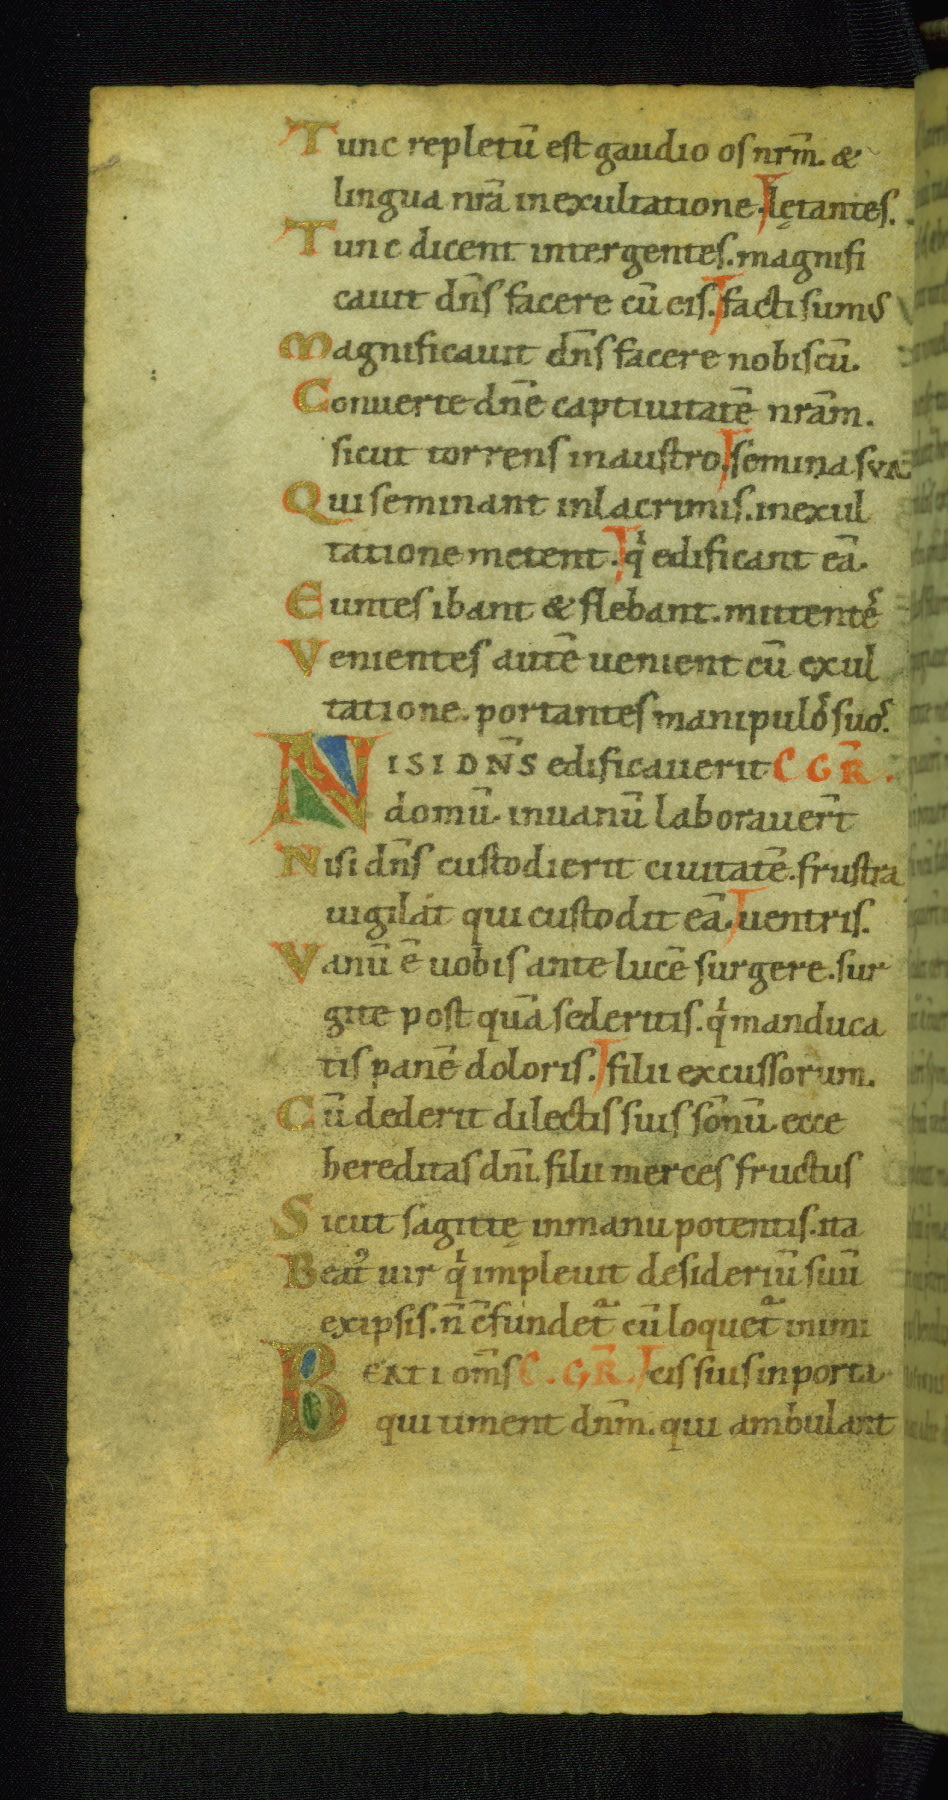 Tunc repletū est gaudio os nr̄m. &
lingua nr̄a in exultatione. lętantes.
Tunc dicent inter gentes. magnifi
cauit dn̄s facere cū eis. facti sumus
Magnificauit dn̄s facere nobiscū.
Conuerte dn̄e captiuitatē nr̄am.
sicut torrens in austro. semina sua
Qui seminant in lacrimis. in exul
tatione metent. qͥ edificant eā.
Euntes ibant & flebant. mittentes
Venientes autē uenient cū exul
tatione. portantes manipulos suos.
NISI DN̄S edificauerit C GR̄.
domū. in uanū laborauer̄t
Nisi dn̄s custodierit ciuitatē. frustra
uigilat qui custodit eā. uentris.
Vanū ē uobis ante lucē surgere. sur
gite post quā sederitis. qͥ manduca
tis panē doloris. filii excussorum.
Cū dederit dilectis suis som̄nū. ecce
hereditas dn̄i. filii merces fructus
Sicut sagittę in manu potentis. ita
Beatꝰ uir qͥ impleuit desideriū suū
ex ipsis. n̄ c̄fundetͣ cū loquetͣ inimi
BEATI om̄s C. GR̄. cis suis in porta.
qui timent dn̄m. qui ambulant